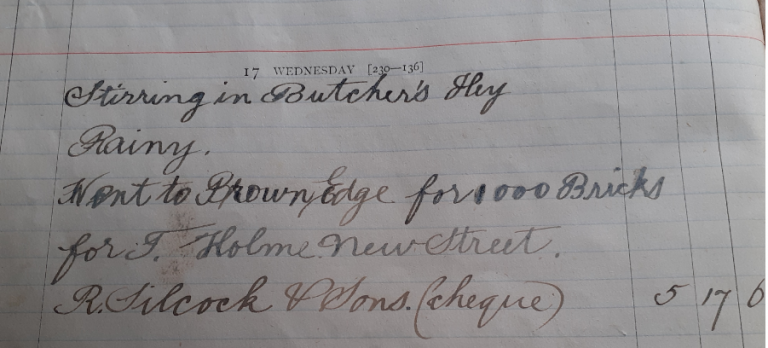 17 WEDNESDAY [230—136]
Stirring in Butcher's Hey
Rainy.
Went to Brown Edge for 1000 Bricks
for T. Holme New Street.
R. Silcock & Sons. (cheque) 5 17 6